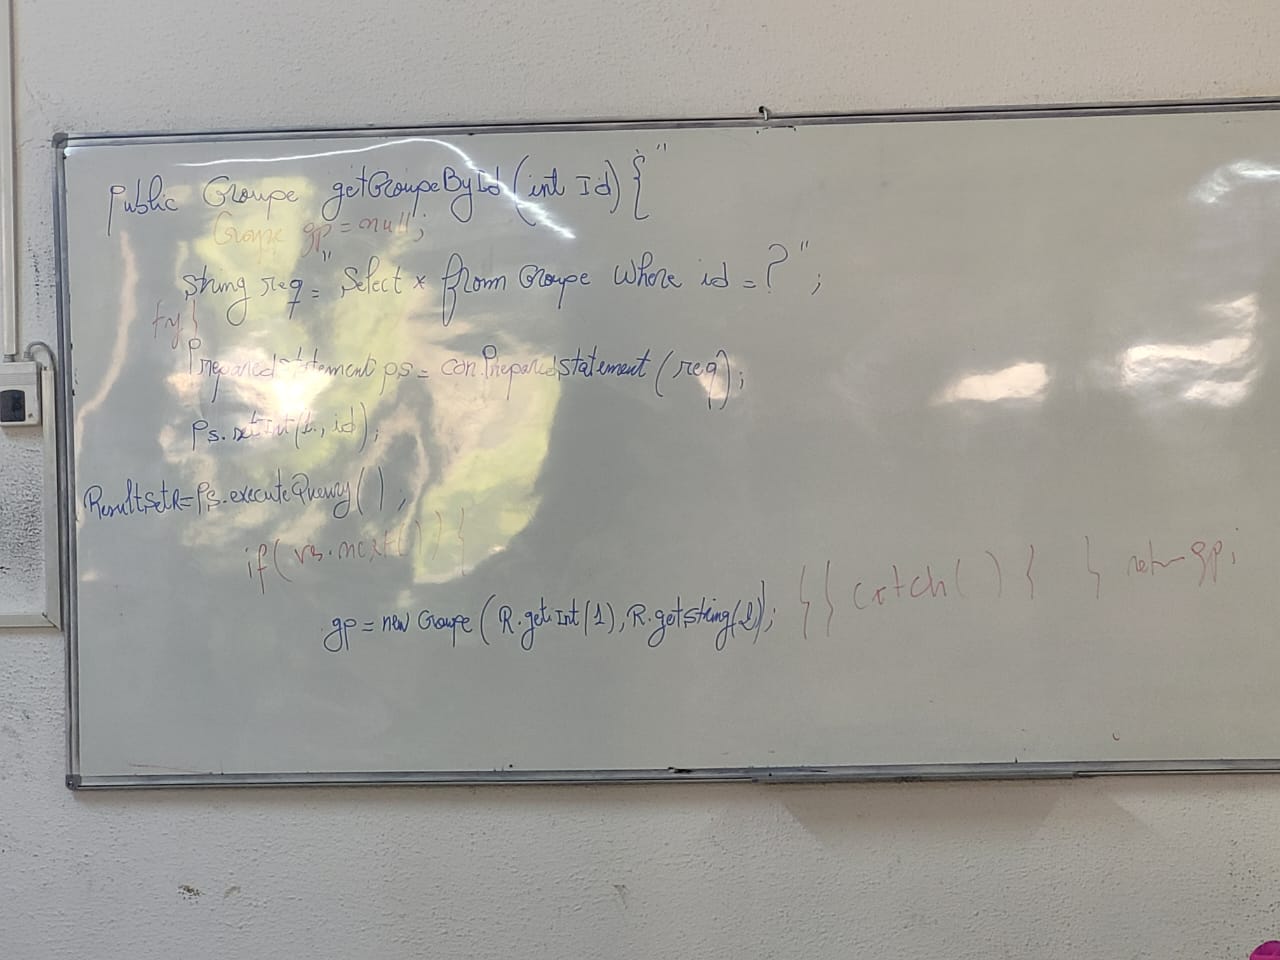 Public Groupe getGroupeById (int Id) { "
Groupe gp = null;
String req = " Select * from Groupe where id = ? " ;
try {
Prepared statement ps = con.Preparedstatement (req) ;
Ps.setInt(1, id) ;
ResultSetR=Ps.executeQuerry() ;
if( rs.next() ) {
gp = new Groupe ( R.getInt(1), R.getString(2)) ; } } catch( ) { } return gp;